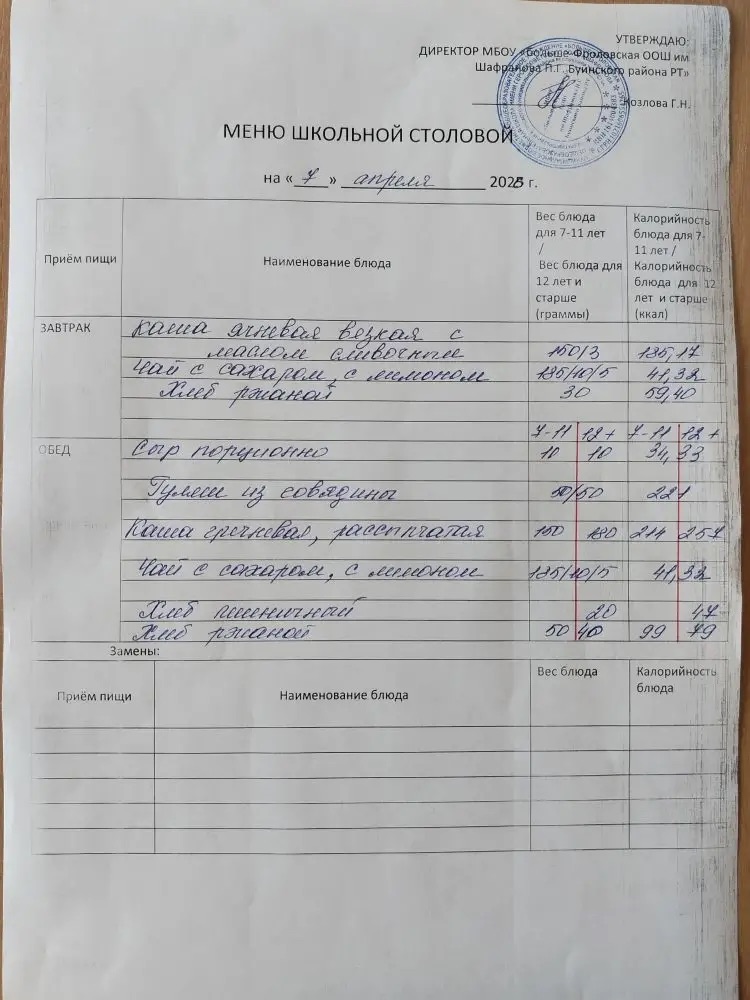 УТВЕРЖДАЮ:
ДИРЕКТОР МБОУ «Больше-Фроловская ООШ им
Шафранова П.Г. Буинского района РТ»
Козлова Г.Н.
МЕНЮ ШКОЛЬНОЙ СТОЛОВОЙ
на «7» апреля 2025 г.
Приём пищи
Наименование блюда
Вес блюда для 7-11 лет / Вес блюда для 12 лет и старше (граммы)
Калорийность блюда для 7-11 лет / Калорийность блюда для 12 лет и старше (ккал)
ЗАВТРАК
Каша ячневая вязкая с
маслом сливочным 150/3 185,17
Чай с сахаром, с лимоном 185/10/5 41,32
Хлеб ржаной 30 59,40
7-11 12+ 7-11 12+
ОБЕД
Сыр порционно 10 10 34,33
Гуляш из говядины 50/50 221
Каша гречневая, рассыпчатая 150 180 214 257
Чай с сахаром, с лимоном 185/10/5 41,32
Хлеб пшеничный 20 47
Хлеб ржаной 50 40 99 79
Замены:
Приём пищи
Наименование блюда
Вес блюда
Калорийность блюда